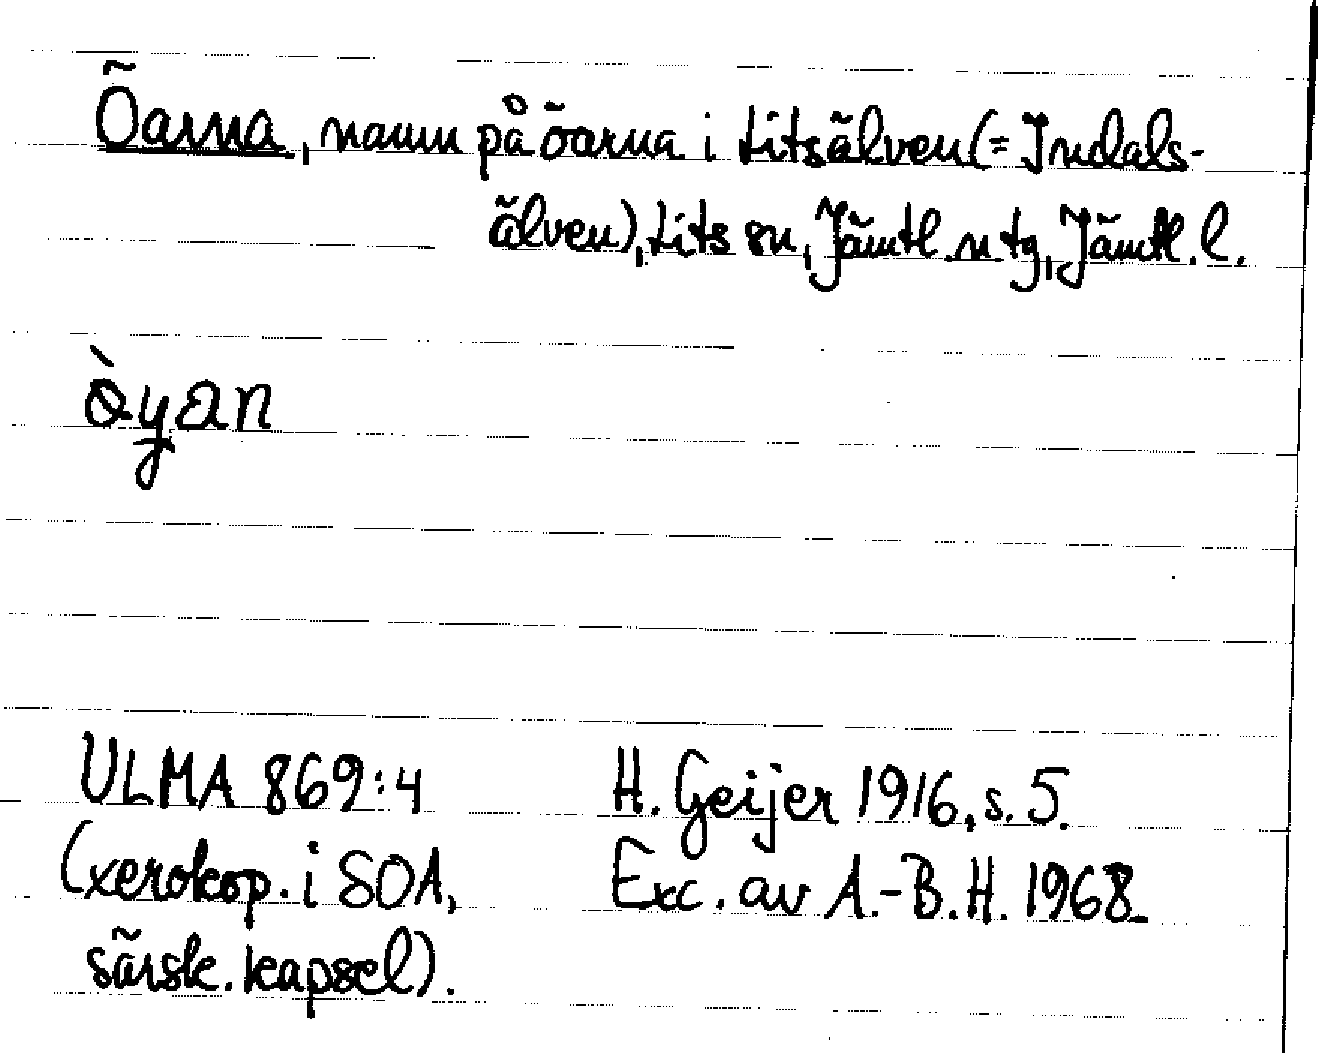 Öarna, namn på öarna i Litsälven (= Indals-
älven), Lits sn, Jämtl. n tg, Jämtl. l.
ö̀yan
ULMA 869:4
(xerokop. i SOA,
särsk. kapsel).
H. Geijer 1916, s. 5.
Exc. av A.-B.H. 1968.